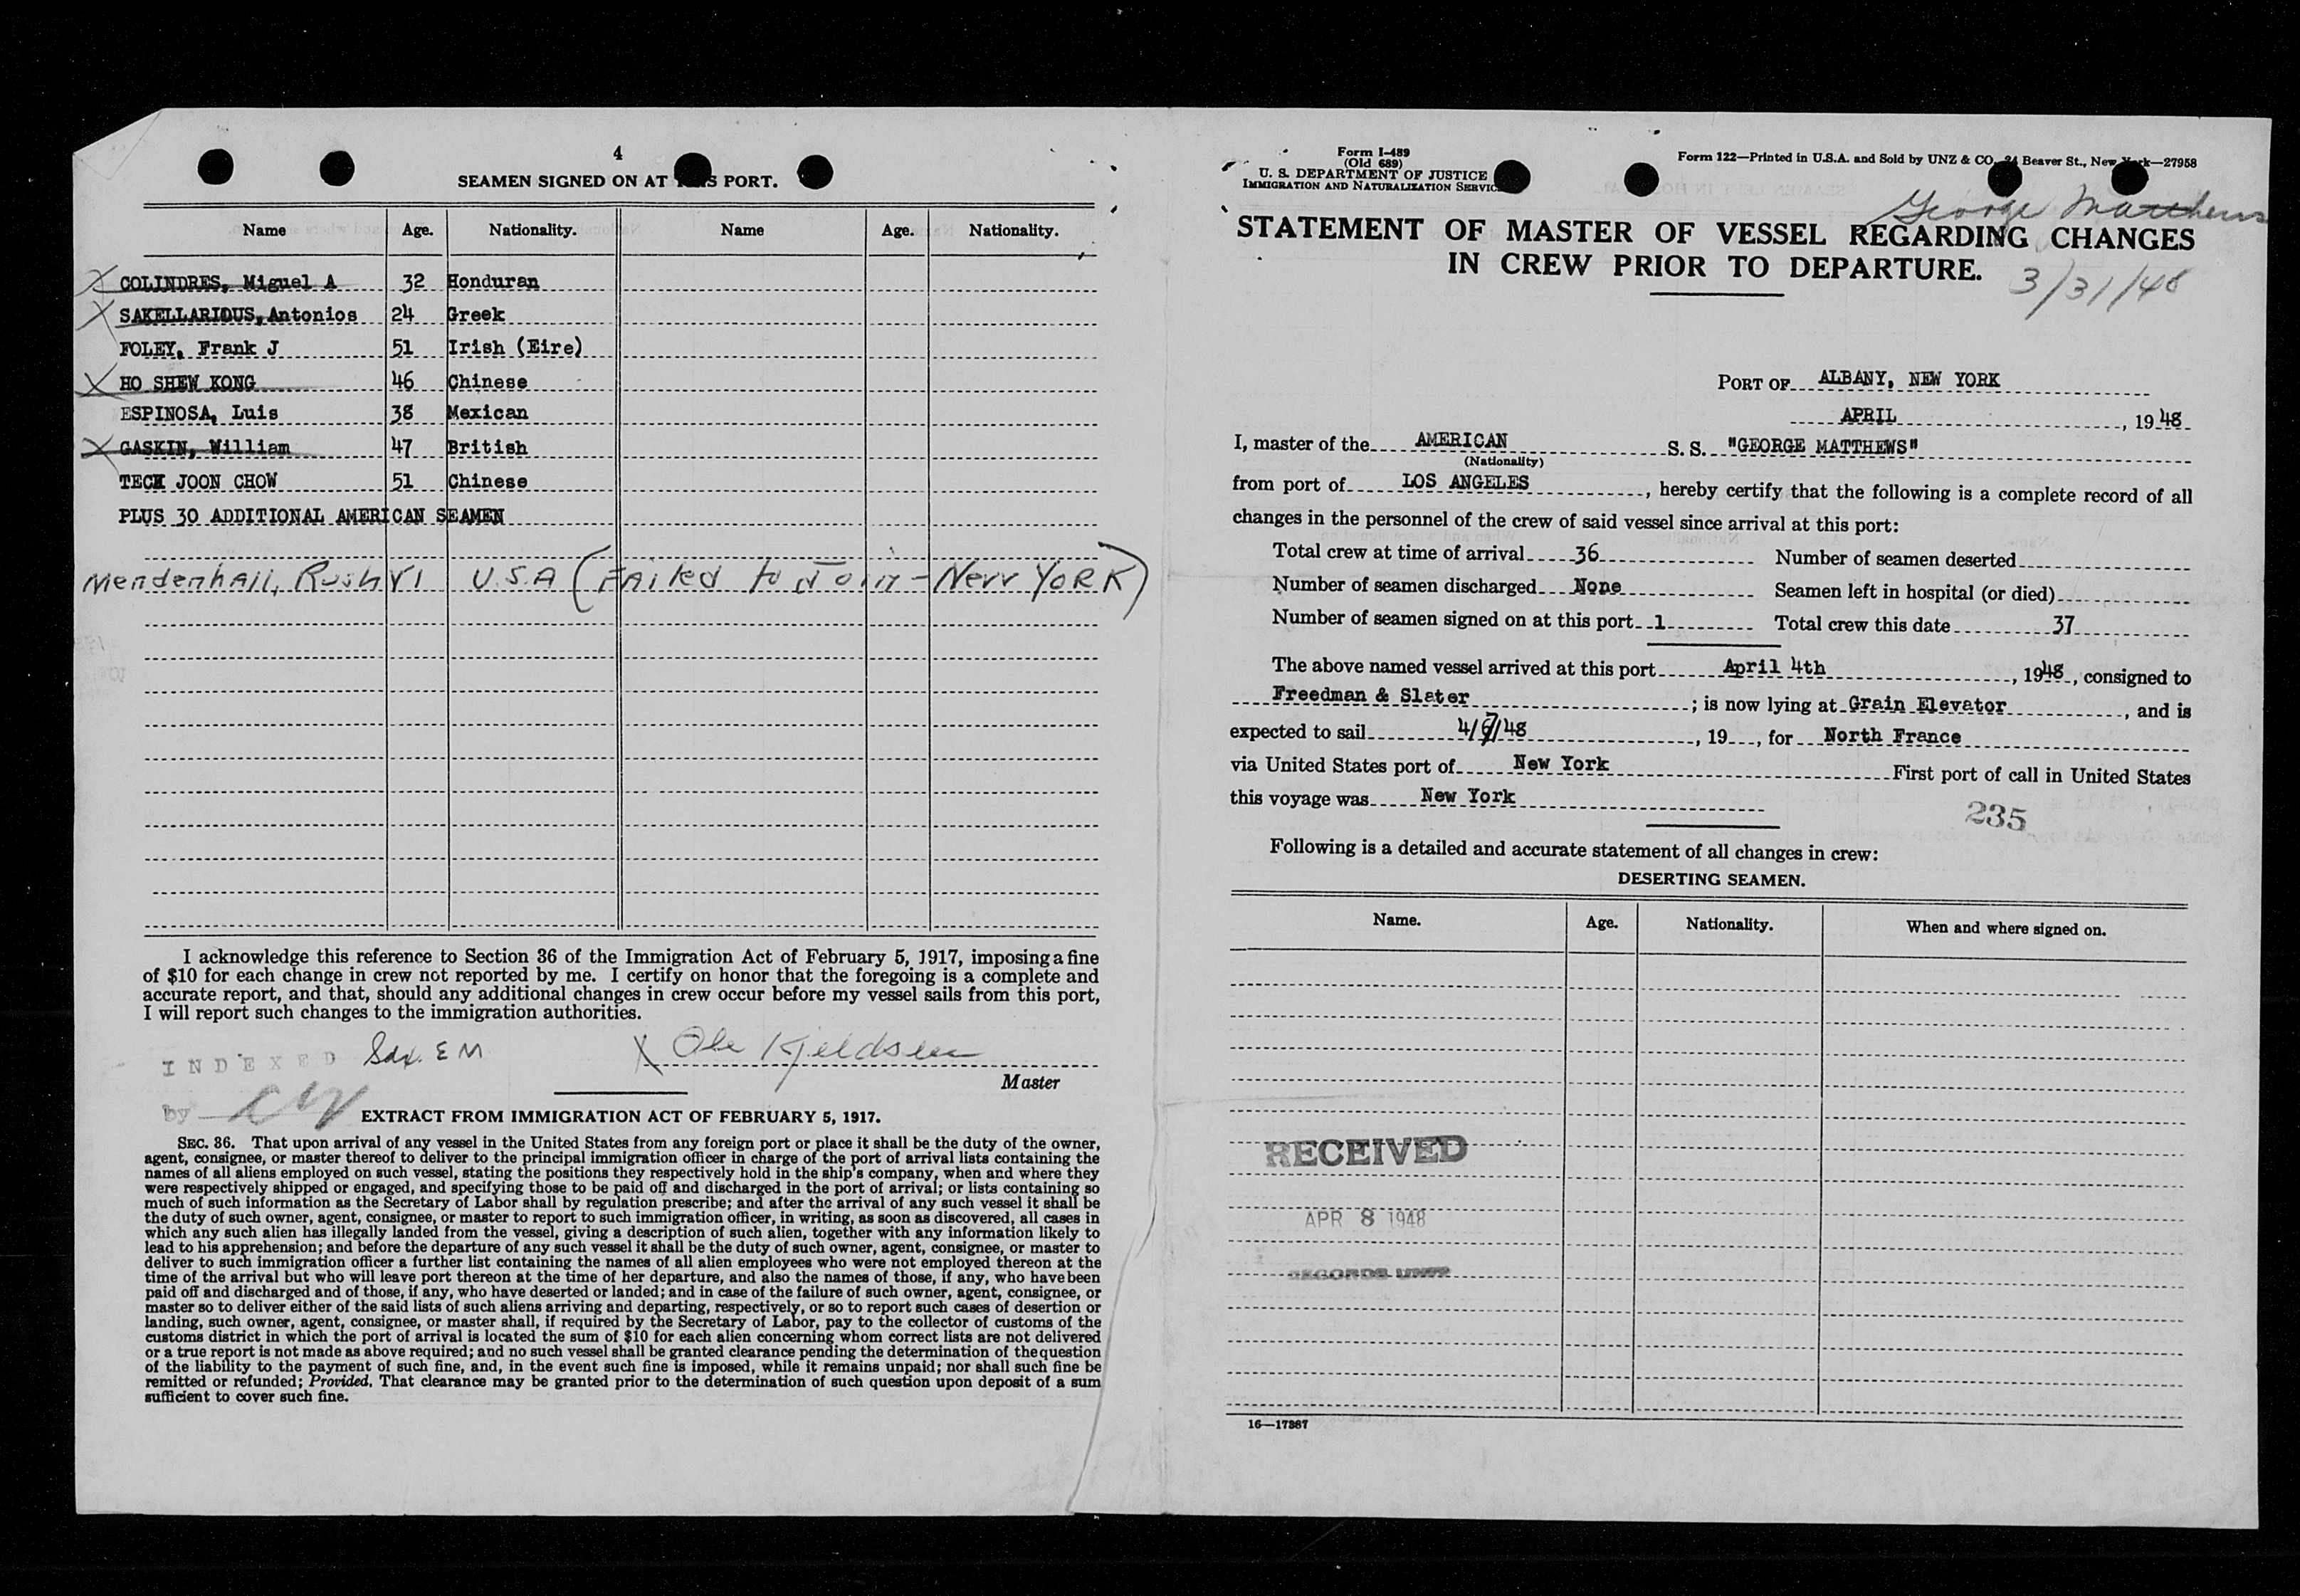 4
SEAMEN SIGNED ON AT THIS PORT.
Name Age. Nationality. Name Age. Nationality.
COLINDRES, Miguel A 32 Honduran
SAKELLARIDUS, Antonios 24 Greek
FOLEY, Frank J 51 Irish (Eire)
HO SHEW KONG 46 Chinese
ESPINOSA, Luis 38 Mexican
GASKIN, William 47 British
TECK JOON CHOW 51 Chinese
PLUS 30 ADDITIONAL AMERICAN SEAMEN
Mendenhall, Rush VI U.S.A (Failed to Join - New YORK)
I acknowledge this reference to Section 36 of the Immigration Act of February 5, 1917, imposing a fine
of $10 for each change in crew not reported by me. I certify on honor that the foregoing is a complete and
accurate report, and that, should any additional changes in crew occur before my vessel sails from this port,
I will report such changes to the immigration authorities.
INDEXED
X Ole Kjeldsen
Master
by
EXTRACT FROM IMMIGRATION ACT OF FEBRUARY 5, 1917.
SEC. 36. That upon arrival of any vessel in the United States from any foreign port or place it shall be the duty of the owner,
agent, consignee, or master thereof to deliver to the principal immigration officer in charge of the port of arrival lists containing the
names of all aliens employed on such vessel, stating the positions they respectively hold in the ship's company, when and where they
were respectively shipped or engaged, and specifying those to be paid off and discharged in the port of arrival; or lists containing so
much of such information as the Secretary of Labor shall by regulation prescribe; and after the arrival of any such vessel it shall be
the duty of such owner, agent, consignee, or master to report to such immigration officer, in writing, as soon as discovered, all cases in
which any such alien has illegally landed from the vessel, giving a description of such alien, together with any information likely to
lead to his apprehension; and before the departure of any such vessel it shall be the duty of such owner, agent, consignee, or master to
deliver to such immigration officer a further list containing the names of all alien employees who were not employed thereon at the
time of the arrival but who will leave port thereon at the time of her departure, and also the names of those, if any, who have been
paid off and discharged and of those, if any, who have deserted or landed; and in case of the failure of such owner, agent, consignee, or
master so to deliver either of the said lists of such aliens arriving and departing, respectively, or so to report such cases of desertion or
landing, such owner, agent, consignee, or master shall, if required by the Secretary of Labor, pay to the collector of customs of the
customs district in which the port of arrival is located the sum of $10 for each alien concerning whom correct lists are not delivered
or a true report is not made as above required; and no such vessel shall be granted clearance pending the determination of the question
of the liability to the payment of such fine, and, in the event such fine is imposed, while it remains unpaid; nor shall such fine be
remitted or refunded; Provided, That clearance may be granted prior to the determination of such question upon deposit of a sum
sufficient to cover such fine.
Form I-489
(Old 689)
U. S. DEPARTMENT OF JUSTICE
IMMIGRATION AND NATURALIZATION SERVICE
Form 122—Printed in U.S.A. and Sold by UNZ & CO. 24 Beaver St., New York—27958
George Matthews
STATEMENT OF MASTER OF VESSEL REGARDING CHANGES
IN CREW PRIOR TO DEPARTURE.
3/31/48
PORT OF ALBANY, NEW YORK
APRIL, 1948
I, master of the AMERICAN S. S. "GEORGE MATTHEWS"
(Nationality)
from port of LOS ANGELES, hereby certify that the following is a complete record of all
changes in the personnel of the crew of said vessel since arrival at this port:
Total crew at time of arrival 36 Number of seamen deserted
Number of seamen discharged None Seamen left in hospital (or died)
Number of seamen signed on at this port 1 Total crew this date 37
The above named vessel arrived at this port April 4th, 1948, consigned to
Freedman & Slater; is now lying at Grain Elevator, and is
expected to sail 4/7/48, 19, for North France
via United States port of New York First port of call in United States
this voyage was New York
235
Following is a detailed and accurate statement of all changes in crew:
DESERTING SEAMEN.
Name. Age. Nationality. When and where signed on.
RECEIVED
APR 8 1948
RECORDS UNIT
16—17367